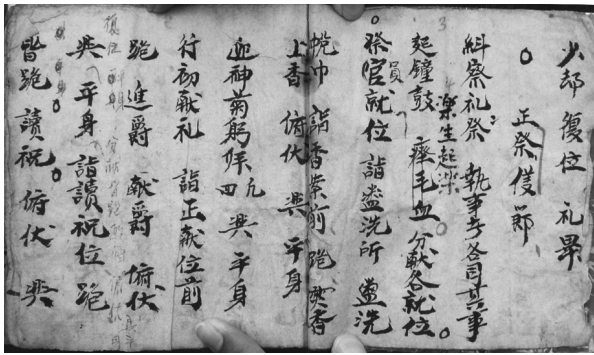 少却復位 礼畢
正祭儀節
糾察礼祭 執事者各司其事
樂生起樂
起鐘鼓 瘞毛血 分献各就位
祭官員就位 詣盥洗所 盥洗
帨巾 詣香案前 跪 焚香
上香 俯伏 興 平身
迎神菊躬拜 四 興 平身
行初献礼 詣正献位前
跪 進爵 献爵 俯伏
興 平身 詣讀祝位 跪
皆跪 讀祝 俯伏 興